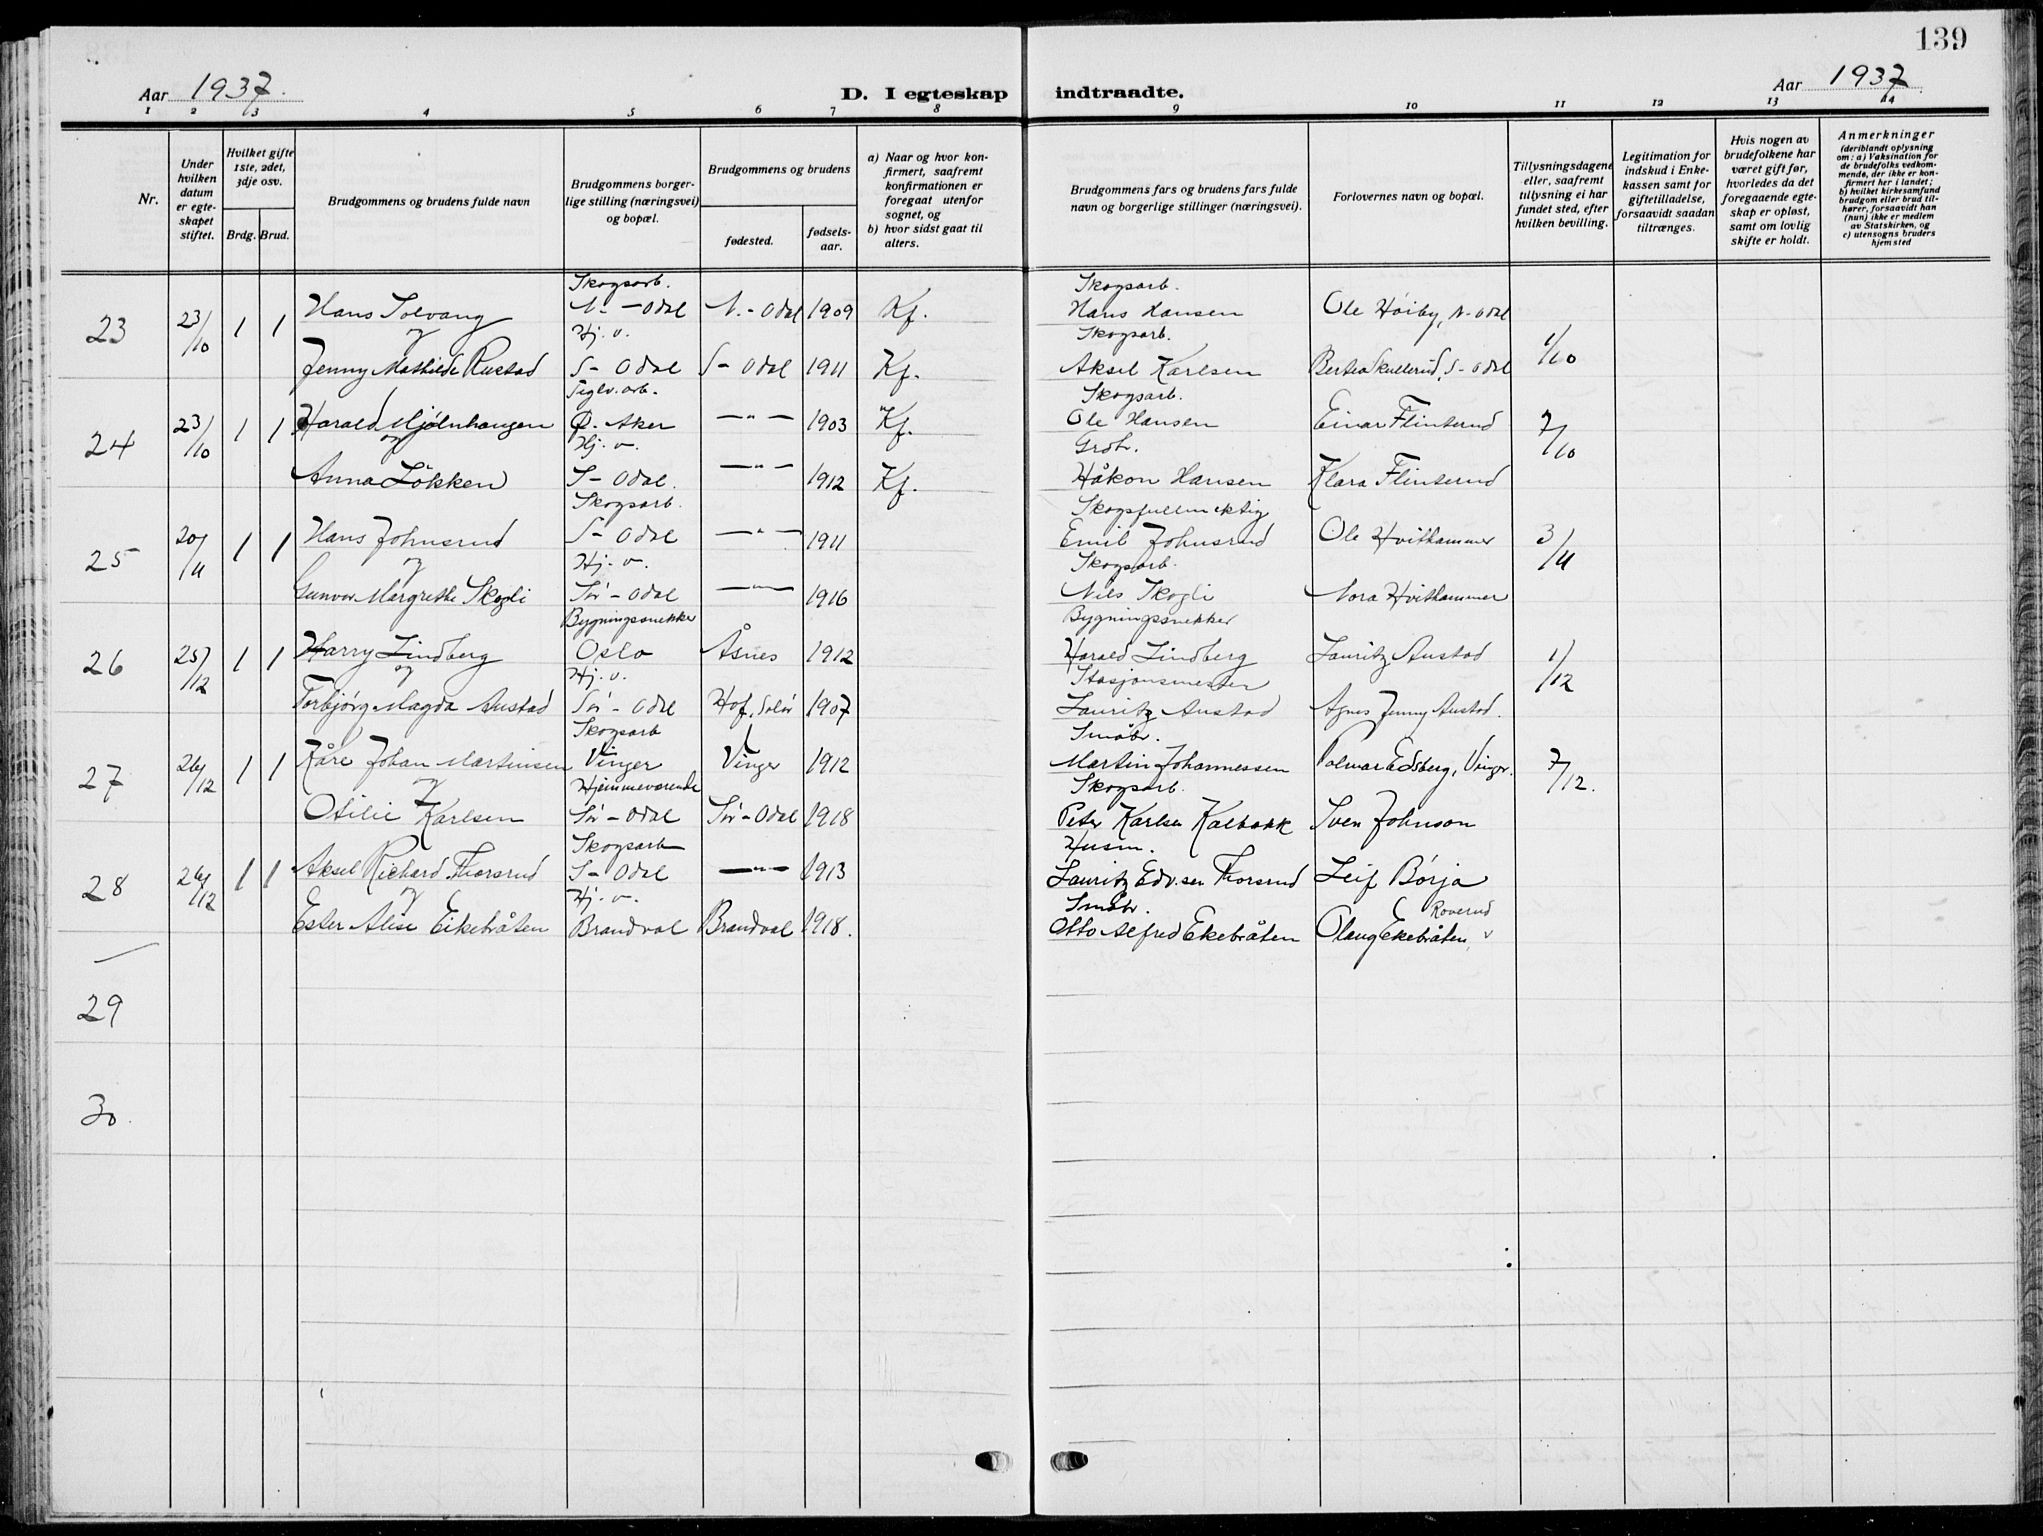 139
Aar 1937.
D. I egteskap indtraadte.
Aar 1937
1 2 3 4 5 6 7 8 9 10 11 12 13 14
Nr.
Under hvilken datum er egteskapet stiftet.
Hvilket gifte 1ste, 2det, 3dje osv.
Brdg. Brud.
Brudgommens og brudens fulde navn
Brudgommens borgerlige stilling (næringsvei) og bopæl.
Brudgommens og brudens
fødested.
fødselsaar.
a) Naar og hvor konfirmert, saafremt konfirmationen er foregaat utenfor sognet, og
b) hvor sidst gaat til alters.
Brudgommens fars og brudens fars fulde navn og borgerlige stillinger (næringsvei).
Forlovernes navn og bopæl.
Tillysningsdagene eller, saafremt tillysning ei har fundet sted, efter hvilken bevilling.
Legitimation for indskud i Enkekassen samt for giftetilladelse, forsaavidt saadan tiltrænges.
Hvis nogen av brudefolkene har været gift før, hvorledes da det foregaaende egteskap er opløst, samt om lovlig skifte er holdt.
Anmerkninger
(deriblandt oplysning om: a) Vaksination for de brudefolks vedkommende, der ikke er konfirmert her i landet; b) hvilket kirkesamfund brudgom eller brud tilhører, forsaavidt han (hun) ikke er medlem av Statskirken, og c) utensogns bruders hjemsted
Skogsarb. Skogsarb.
23 23/10 1 1 Hans Solvang N.-Odal N.-Odal 1909 Kf. Hans Hansen Ole Høiby, N-Odal 1/10
og Hj. v. Skogsarb.
Jenny Mathilde Rustad S-Odal S-Odal 1911 Kf. Aksel Karlsen Bertea Skullerud, S-Odal
Teglv. arb. Skogsarb.
24 23/10 1 1 Harald Mjølnhaugen Ø. Aker —"— 1903 Kf. Ole Hansen Einar Flinterud 7/10
og Hj. v. Grbr.
Anna Løkken S-Odal. —"— 1912 Kf. Håkon Hansen Klara Flinterud
Skogsarb. Skogsfullmektig
25 20/11 1 1 Hans Johnsrud S-Odal —"— 1911 Emil Johnsrud Ole Hvithammer 3/11
og Hj. v. Skogsarb.
Gunvor Margrethe Skogli Sør-Odal —"— 1916 Nils Skogli Nora Hvithammer
Bygningssnekker Bygningssnekker
26 25/12 1 1 Harry Lindberg Oslo Åsnes 1912 Harald Lindberg Lauritz Austad 1/12
og Hj. v. Stasjonsmester
Torbjørg Magda Austad Sør-Odal Hof, Solør 1907 Lauritz Austad Agnes Jenny Austad.
Skogsarb Småbr.
27 26/12 1 1 Kåre Johan Martinsen Vinger Vinger 1912 Martin Johannessen Edsberg, Vinger. 7/12.
og Hjemmeværende Skogsarb.
Otilie Karlsen Sør-Odal Sør-Odal 1918 Peter Karlsen Kalbakk Sven Johnson
Skogsarb Husm.
28 26/12 1 1 Aksel Richard Thorsrud S-Odal —"— 1913 Lauritz Edv.sen Thorsrud Leif Børja
og Hj. v. Småbr. Roverud
Ester Alise Eikebråten Brandval Brandval 1918. Otto Alfred Ekebråten Olaug Ekebråten,
29
30.